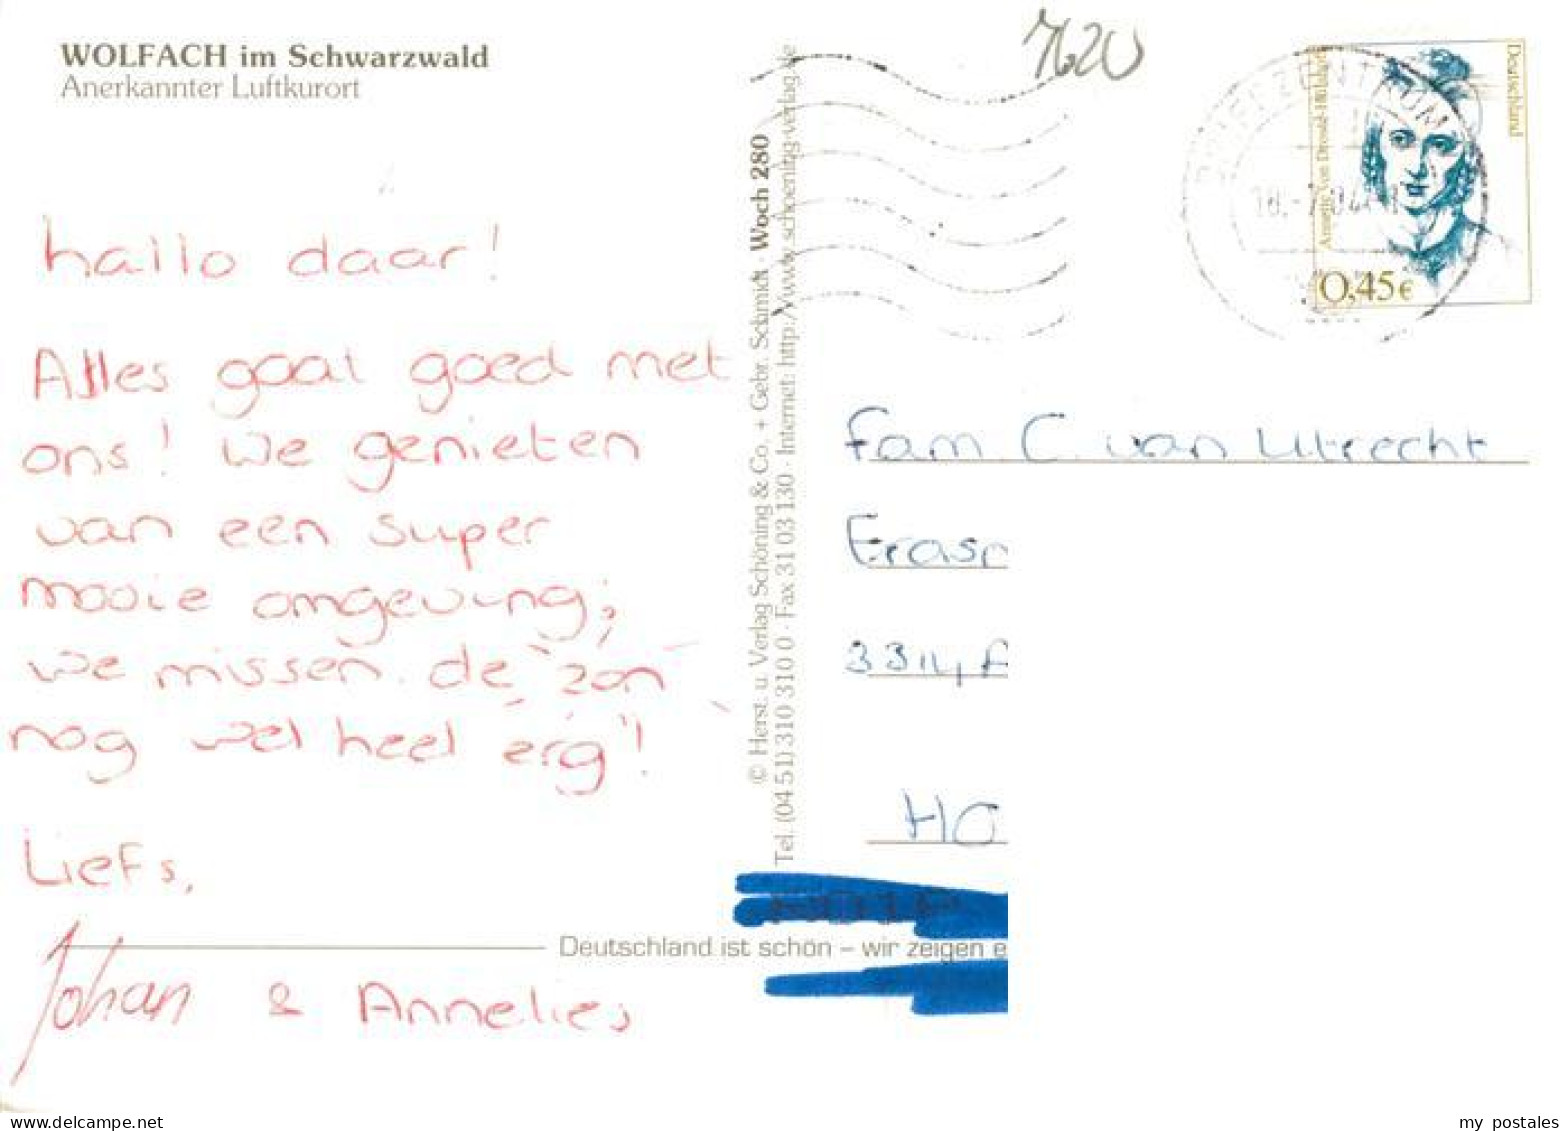 WOLFACH im Schwarzwald
Anerkannter Luftkurort
hallo daar!
Alles gaat goed met
ons! We genieten
van een super
mooie omgeving;
we missen de "zon
nog wel heel erg"!
Liefs,
Johan & Annelies
© Herst. u. Verlag Schöning & Co. + Gebr. Schmidt · Woch 280
Tel. (04 51) 310 310 0 · Fax 31 03 130 · Internet: http://www.schoening-verlag.de
7620
BRIEFZENTRUM
Deutschland
Annette von Droste-Hülshoff
0,45 €
Fam C. van Utrecht
Eras
3314
HO
Deutschland ist schön – wir zeigen e
my postales
delcampe.net